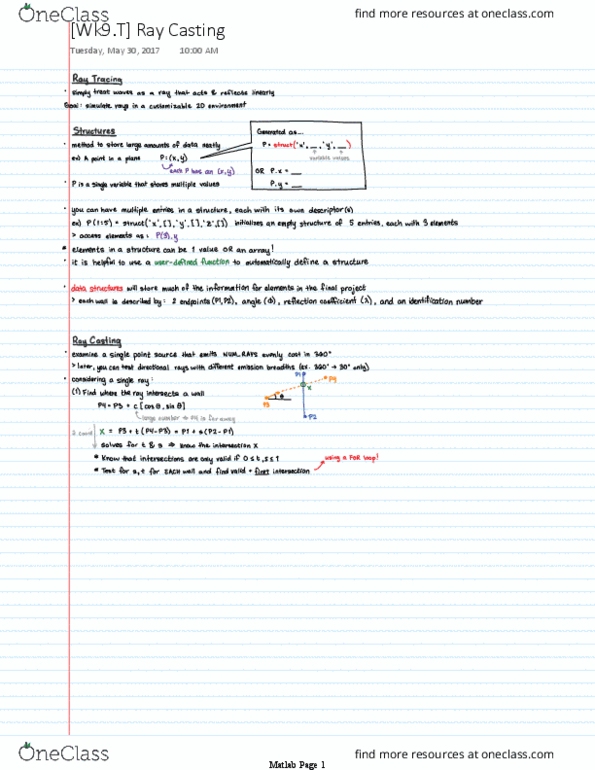 OneClass
find more resources at oneclass.com
[Wk9.T] Ray Casting
Tuesday, May 30, 2017 10:00 AM
Ray Tracing
· simply treat waves as a ray that acts & reflects linearly
Goal: simulate rays in a customizable 2D environment
Structures
· method to store large amounts of data neatly
ex) A point in a plane P:(x,y)
each P has an (x,y)
· P is a single variable that stores multiple values
Generated as...
P = struct('x',__,'y',__)
variable values
OR P.x = __
P.y = __
· you can have multiple entries in a structure, each with its own descriptor(s)
ex) P(1:5) = struct('x',[],'y',[],'z',[]) initializes an empty structure of 5 entries, each with 3 elements
> access elements as: P(3).y
* elements in a structure can be 1 value OR an array!
· it is helpful to use a user-defined function to automatically define a structure
· data structures will store much of the information for elements in the final project
> each wall is described by: 2 endpoints (P1,P2), angle (Φ), reflection coefficient (λ), and an identification number
Ray Casting
· examine a single point source that emits NUM_RAYS evenly cast in 360°
> later, you can test directional rays with different emission breadths (ex. 360° → 30° only)
· considering a single ray:
(1) Find where the ray intersects a wall
P4 = P3 + c [cos θ, sin θ]
large number so P4 is far away
P1
P4
X
θ
P3
P2
X = P3 + t(P4-P3) = P1 + s(P2-P1)
solves for t & s ⇒ know the intersection X
* Know that intersections are only valid if 0 ≤ t, s ≤ 1
* Test for s, t for EACH wall and find valid + first intersection
using a FOR loop!
OneClass
find more resources at oneclass.com
Matlab Page 1